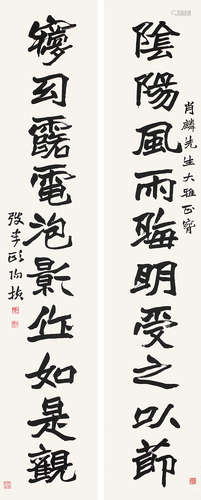 肖麟先生大雅正
陰陽風雨晦明受之以節
夢幻露電泡影作如是觀